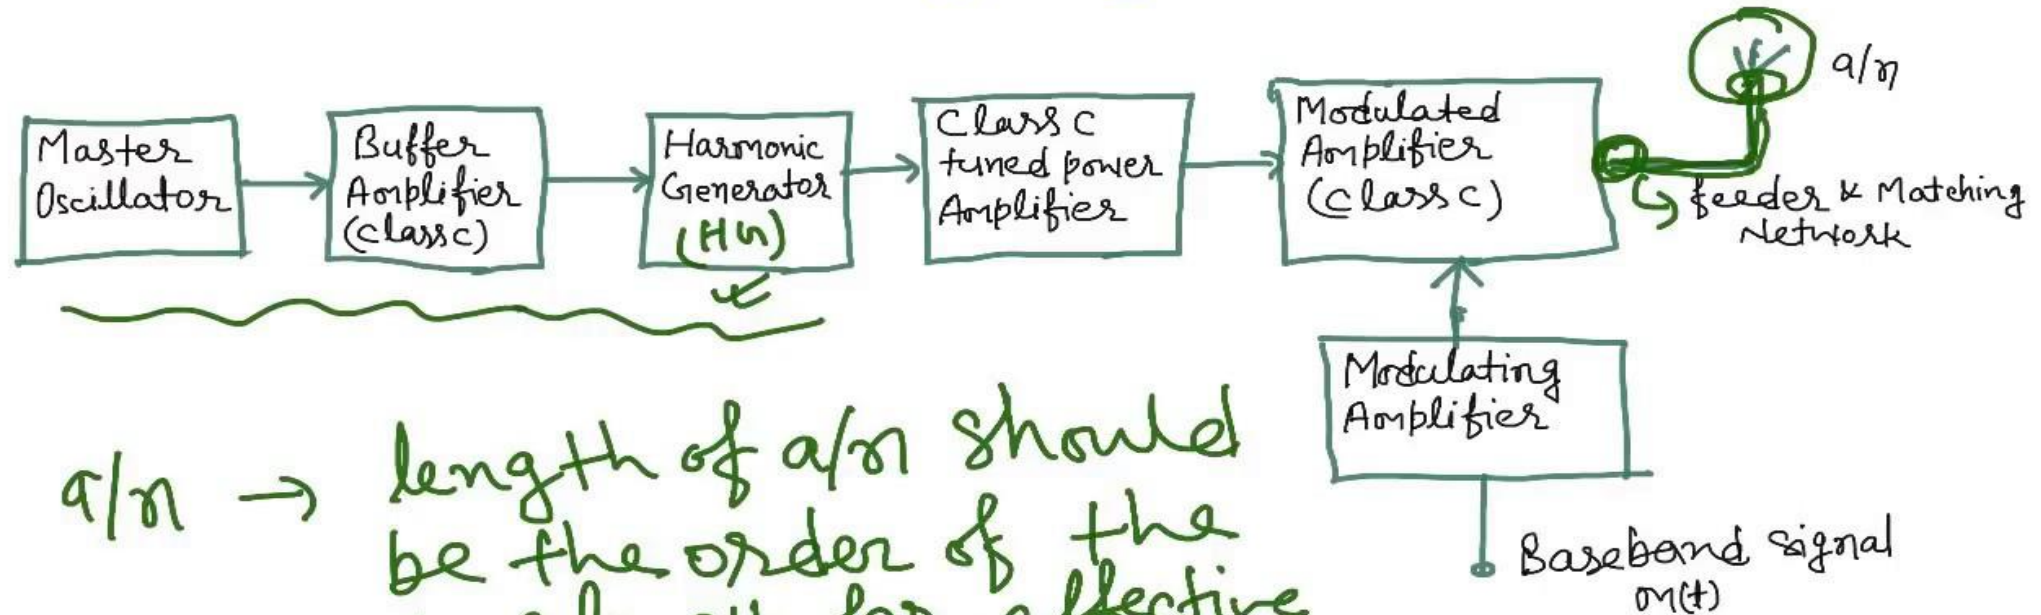 Master
Oscillator
Buffer
Amplifier
(class c)
Harmonic
Generator
(HG)
Class C
tuned power
Amplifier
Modulated
Amplifier
(class c)
a/n
feeder & Matching
Network
Modulating
Amplifier
Baseband signal
m(t)
a/n → length of a/n should
be the order of the
for effective